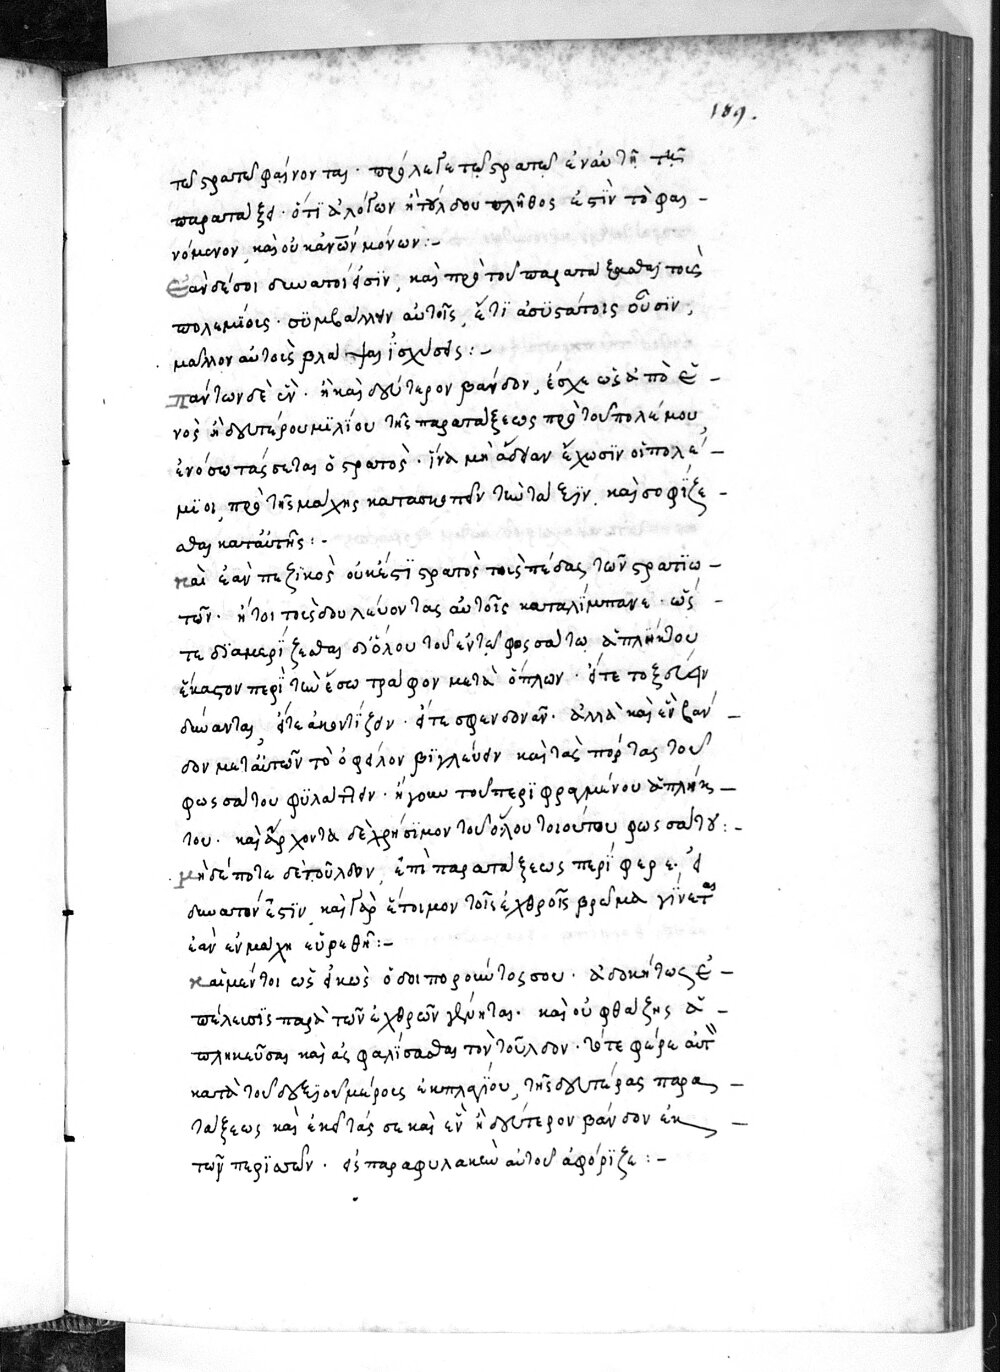 189.
τοῦ στρατοῦ φαίνονται · πρόλεγε τῷ στρατῷ ἐν αὐτῇ τῇ
παρατάξει · ὅτι ἀλόγων ἢ τούλδου πλῆθος ἐστὶν τὸ φαι-
νόμενον, καὶ οὐκ ἀνῶν μόνων :-
Ἐὰν δέ σοι δυνατόν ἐστιν, καὶ πρὸ τοῦ παρατάξασθαι τοὺς
πολεμίους · συμβάλλειν αὐτοῖς, ἔτι ἀσυστάτοις οὖσιν,
μᾶλλον αὐτοὺς βλάψαι ἰσχύσεις :-
Πάντων δὲ ἓν · ἢ καὶ δεύτερον βάνδον, ἔσχε ὡς ἀπὸ ἑ-
νὸς ἢ δευτέρου μιλίου τῆς παρατάξεως πρὸ τοῦ πολέμου,
ἐν ὅσω τάσσεται ὁ στρατὸς · ἵνα μὴ ἄδειαν ἔχωσιν οἱ πολέ-
μιοι, πρὸ τῆς μάχης κατασκοπεῖν τὴν τάξιν, καὶ σοφίζε-
σθαι κατ αὐτῆς :-
Καὶ ἐὰν πεζικὸς οὐκ ἔστι στρατὸς τοὺς παῖδας τῶν στρατιω-
τῶν · ἤτοι τοὺς δουλεύοντας αὐτοῖς καταλίμπανε · ὥσ-
τε διαμερίζεσθαι δι ὅλου τοῦ ἐν τῷ φοσσάτω ἀπλήκτου
ἕκαστον περὶ τὴν ἔσω τράφον μετὰ ὅπλων · εἴτε τοξεύειν
δύνανται, εἴτε ἀκοντίζειν · εἴτε σφενδονᾶν · ἀλλὰ καὶ ἓν βάν-
δον μετ αὐτῶν τὸ ὀφεῖλον βιγλεύειν καὶ τὰς πόρτας τοῦ
φωσσάτου φυλάττειν · ἤγουν τοῦ περιφραγμένου ἀπλήκ-
του · καὶ ἄρχοντα δὲ χρήσιμον τοῦ ὅλου τοιούτου φωσσάτου :-
Μηδέποτε δὲ τοῦλδον, ἐπὶ παρατάξεως περίφερε, εἰ
δυνατόν ἐστιν, καὶ γὰρ ἕτοιμον τοῖς ἐχθροῖς βρῶμα γίνεται
ἐὰν ἐν μάχη εὑρεθῆ :-
Καὶ μέντοι ὡς εἰκὼς ὁδοιποροῦντος σου · ἀδοκήτως ἐ-
πέλευσις παρὰ τῶν ἐχθρῶν γένηται · καὶ οὐ φθάξης ἀ-
πληκεῦσαι καὶ ἀσφαλίσασθαι τὸν τοῦλδον · τότε φέρε αὐτὸν
κατὰ τοῦ δεξιοῦ μέρους ἐκ πλαγίου, τῆς δευτέρας παρα-
τάξεως καὶ ἐκδτάσσε καὶ ἓν ἢ δεύτερον βάνδον ἐκ
τῶν περισσῶν · εἰς παραφυλακὴν αὐτοῦ ἀφόριζε :-